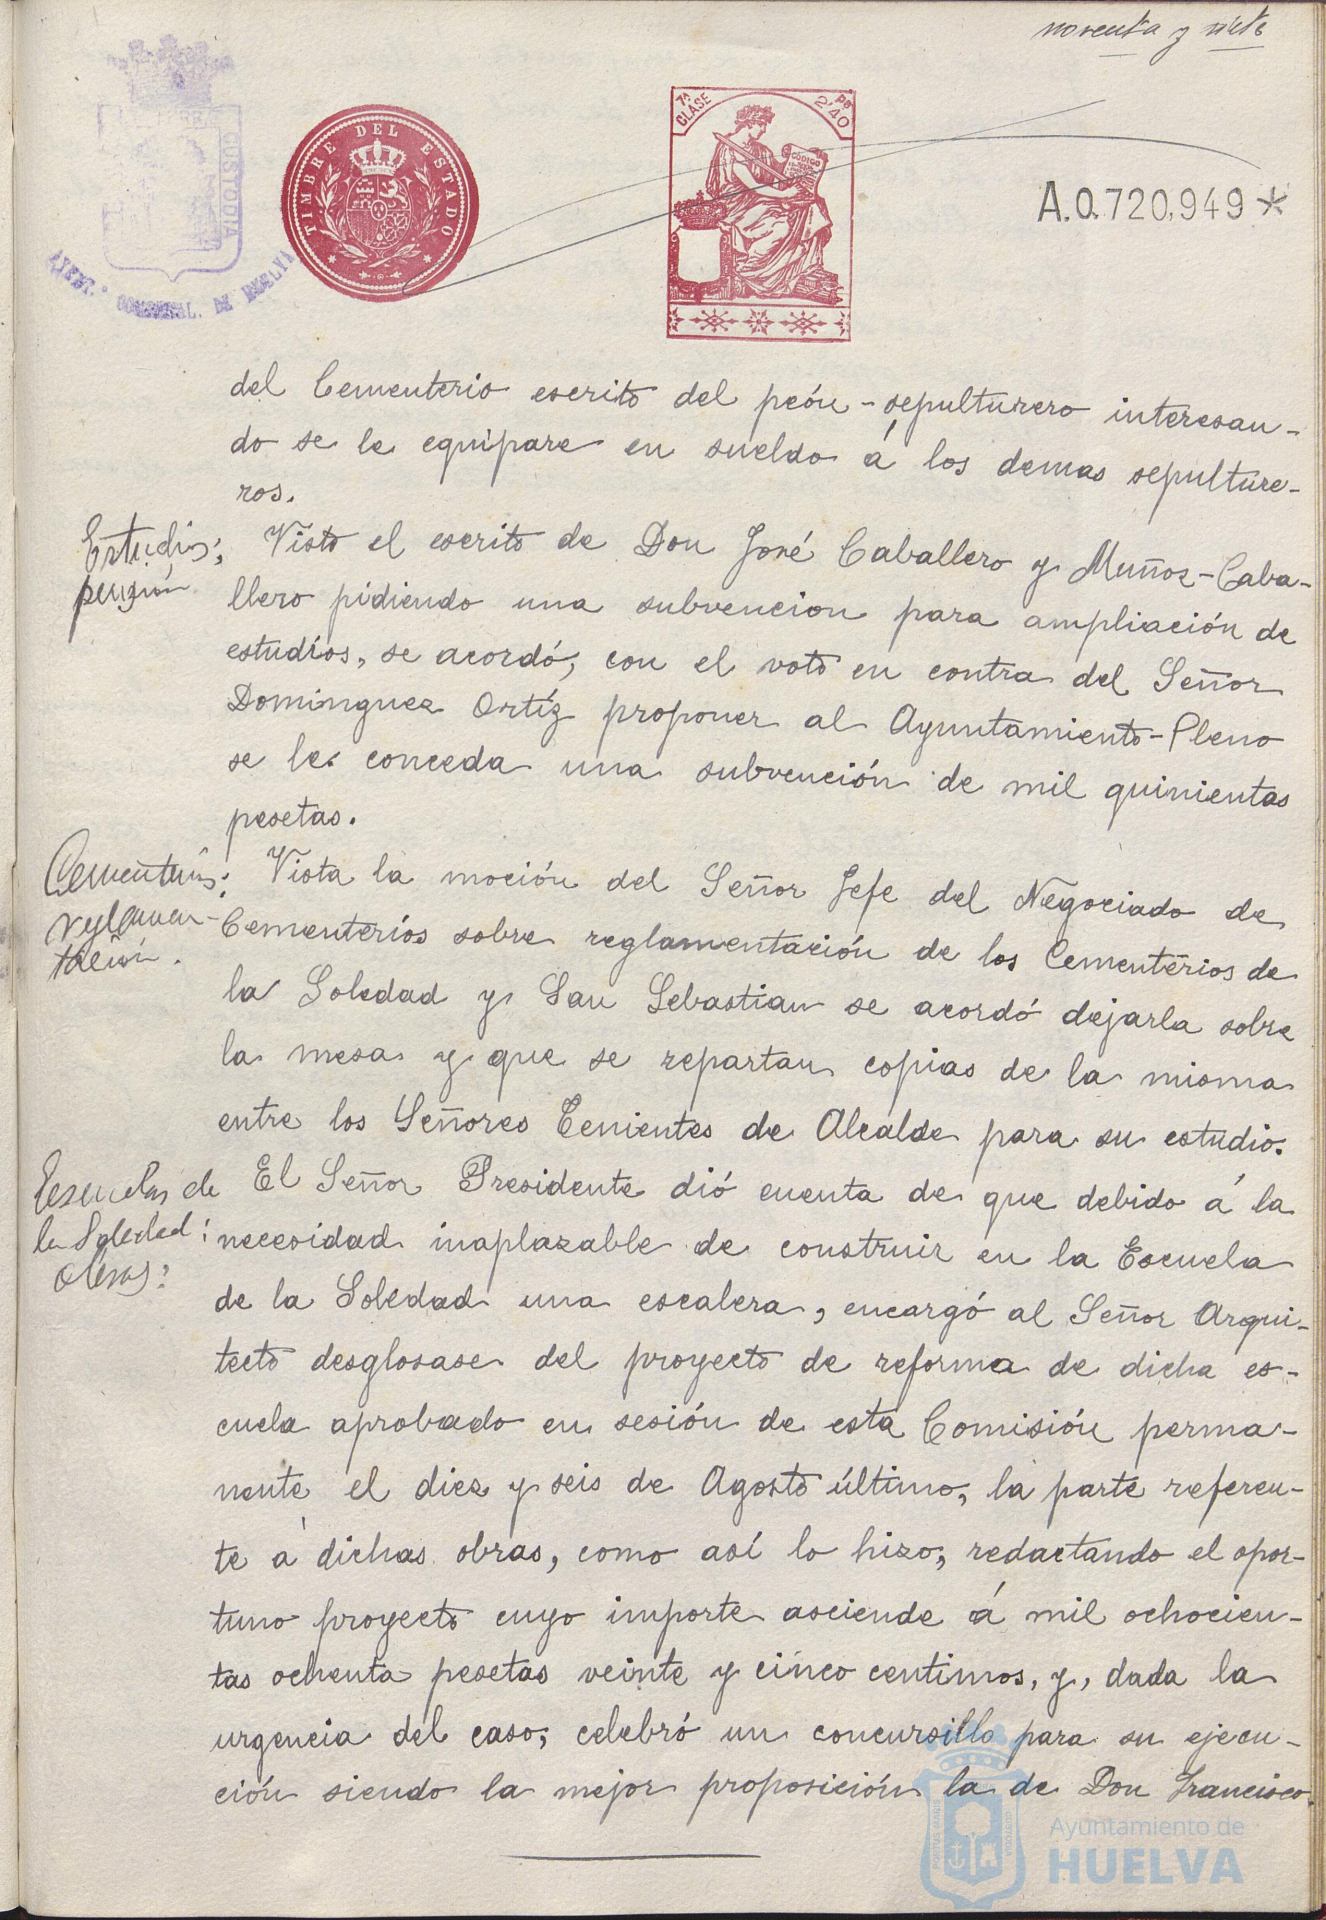 noventa y siete
TIMBRE DEL ESTADO
7ª CLASE
2'40
CÓDIGO
CUSTODIA
A.O.720,949*
del Cementerio escrito del peón-sepulturero interesan-
do se le equipare en sueldo á los demas sepulture-
ros.
Estudios; Visto el escrito de Don José Caballero y Muñoz-Caba-
pensión llero pidiendo una subvencion para ampliación de
estudios, se acordó, con el voto en contra del Señor
Dominguez Ortíz proponer al Ayuntamiento-Pleno
se le conceda una subvención de mil quinientas
pesetas.
Cementerios; Vista la moción del Señor Jefe del Negociado de
reglamen- Cementerios sobre reglamentación de los Cementerios de
tación. la Soledad y San Sebastian se acordó dejarla sobre
la mesa y que se repartan copias de la misma
entre los Señores Tenientes de Alcalde para su estudio.
Escuelas de El Señor Presidente dió cuenta de que debido á la
la Soledad: necesidad inaplazable de construir en la Escuela
obras: de la Soledad una escalera, encargó al Señor Arqui-
tecto desglosase del proyecto de reforma de dicha es-
cuela aprobado en sesión de esta Comisión perma-
nente el diez y seis de Agosto último, la parte referen-
te á dichas obras, como así lo hizo, redactando el opor-
tuno proyecto cuyo importe asciende á mil ochocien-
tas ochenta pesetas veinte y cinco centimos, y, dada la
urgencia del caso, celebró un concursillo para su ejecu-
ción siendo la mejor proposición la de Don Francisco
Ayuntamiento de
HUELVA